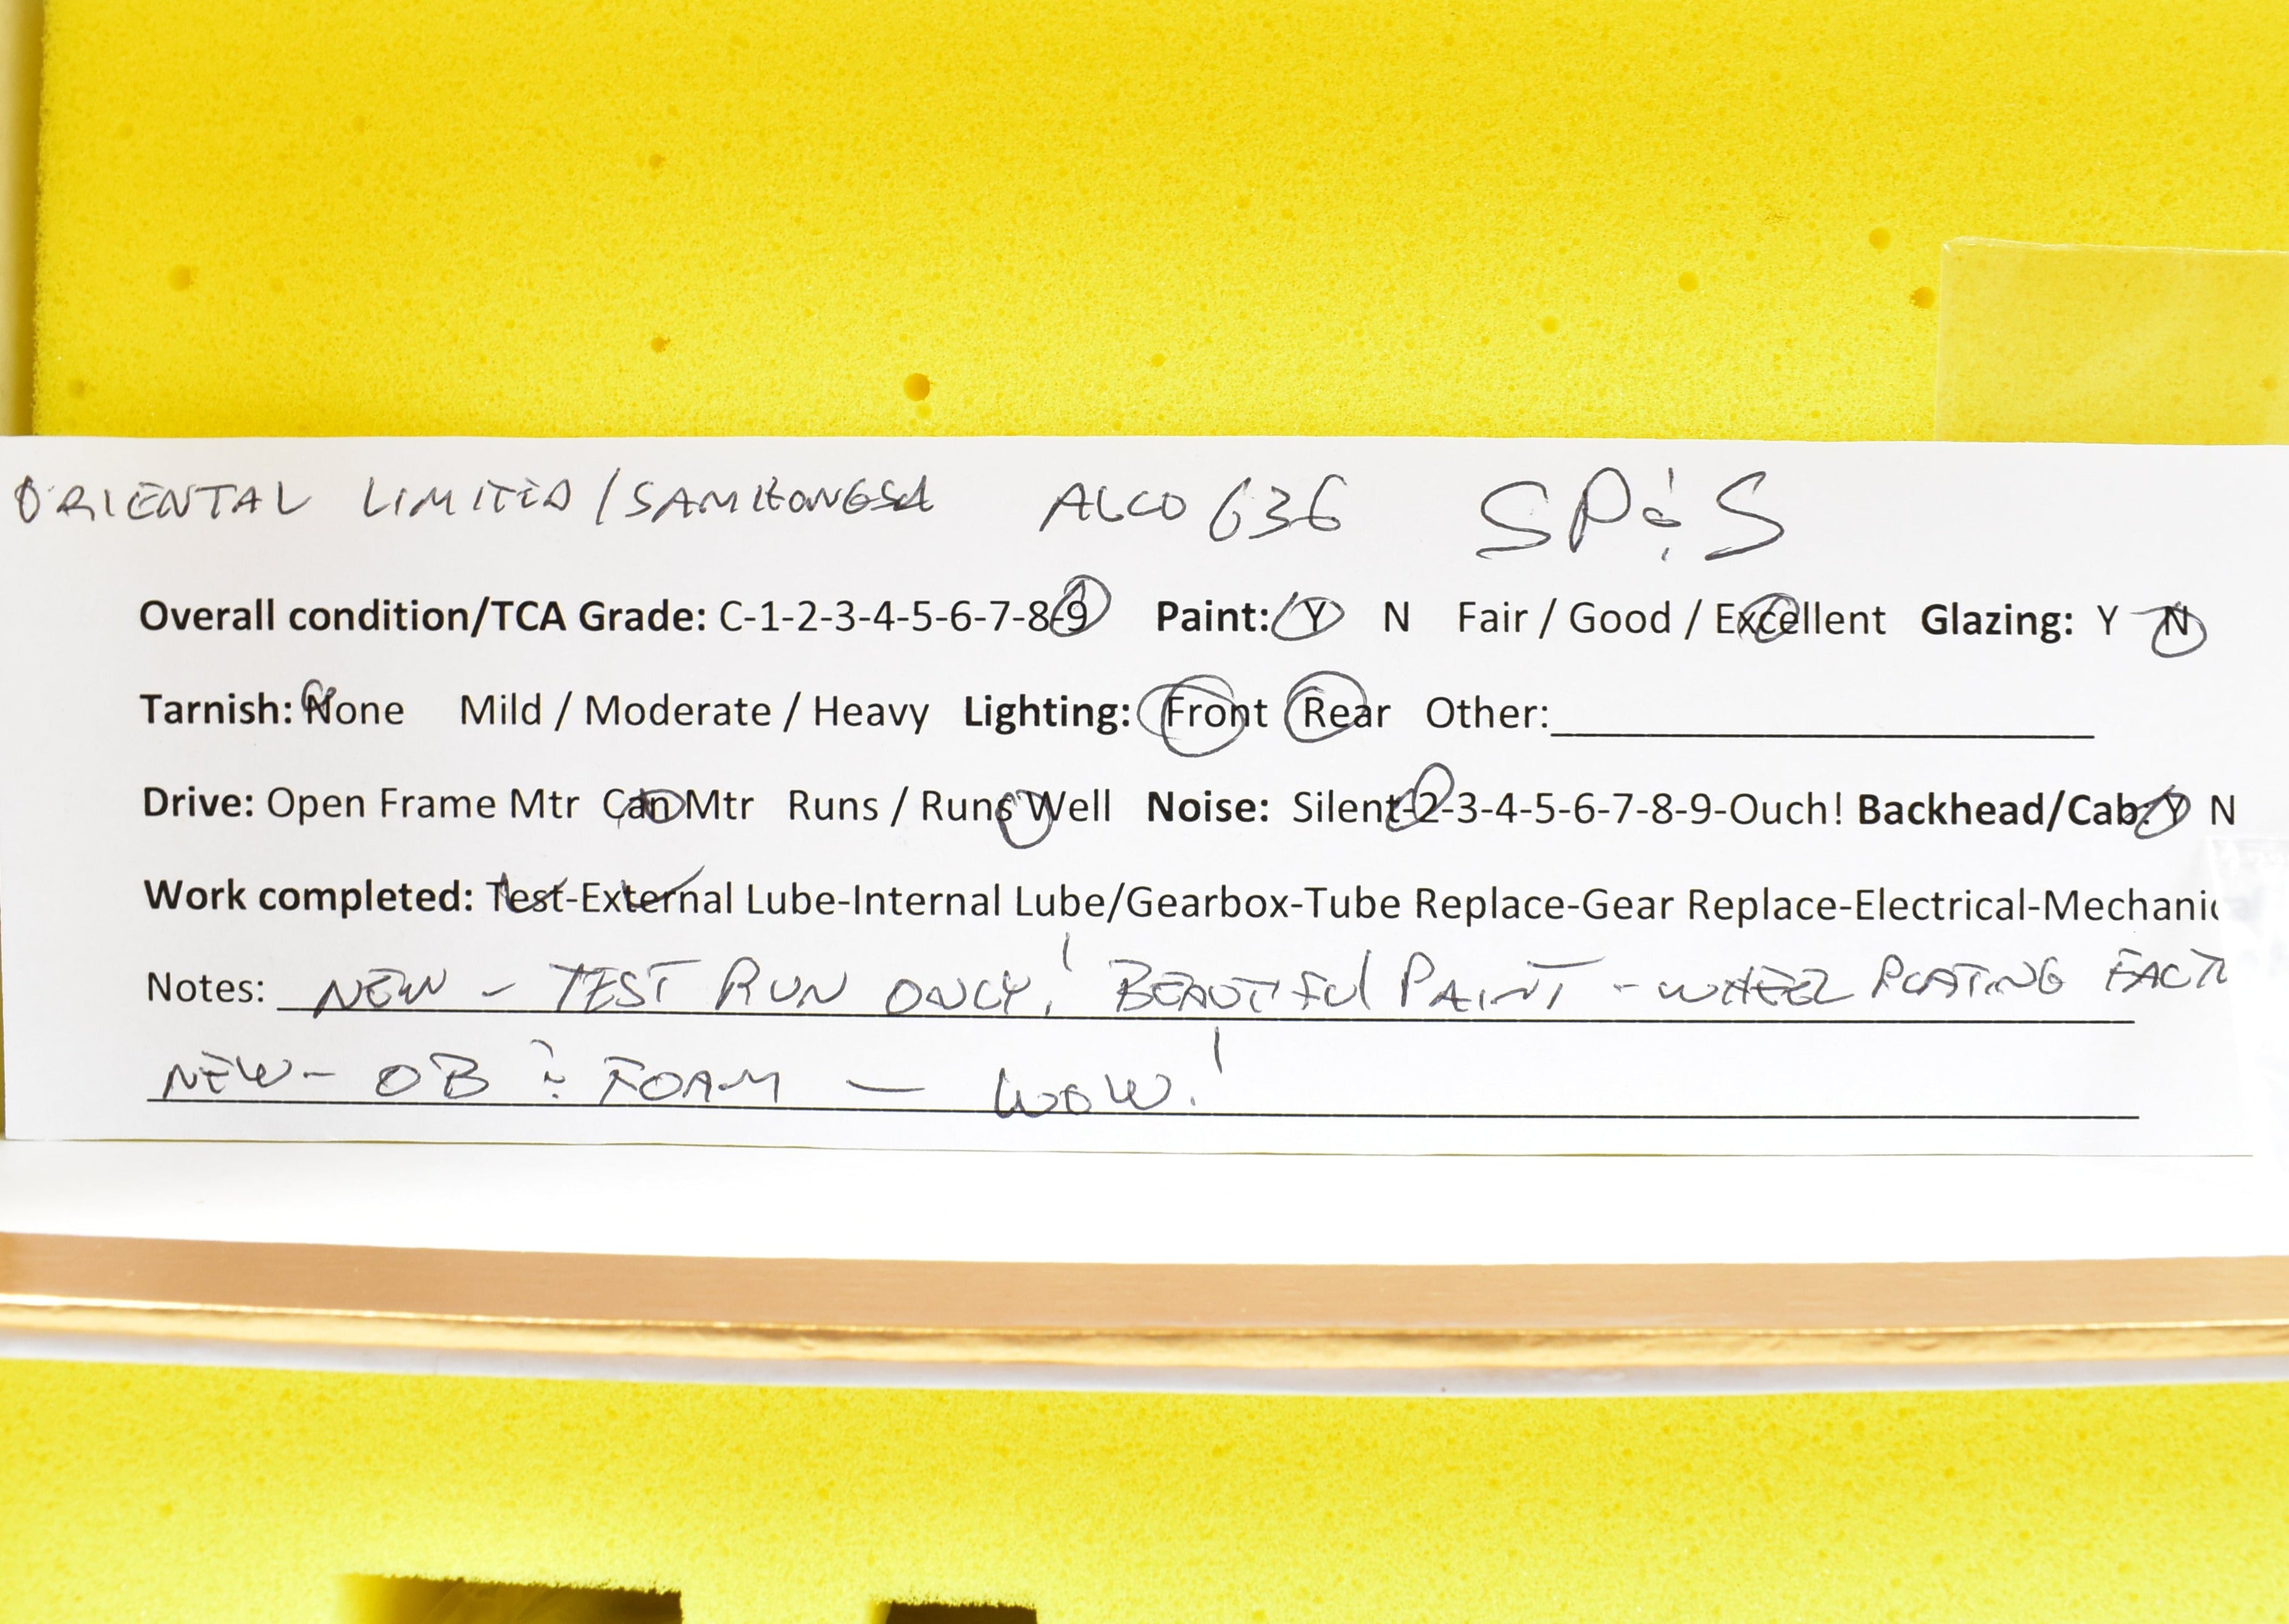 ORIENTAL LIMITED / SAMHONGSA ALCO 636 SP&S
Overall condition/TCA Grade: C-1-2-3-4-5-6-7-8-9 Paint: Y N Fair / Good / Excellent Glazing: Y N
Tarnish: None Mild / Moderate / Heavy Lighting: Front Rear Other:
Drive: Open Frame Mtr Can Mtr Runs / Runs Well Noise: Silent-2-3-4-5-6-7-8-9-Ouch! Backhead/Cab: Y N
Work completed: Test-External Lube-Internal Lube/Gearbox-Tube Replace-Gear Replace-Electrical-Mechanic
Notes: NEW - TEST RUN ONLY! BEAUTIFUL PAINT - WHEEL PLATING FACT
NEW - OB & FOAM - WOW!